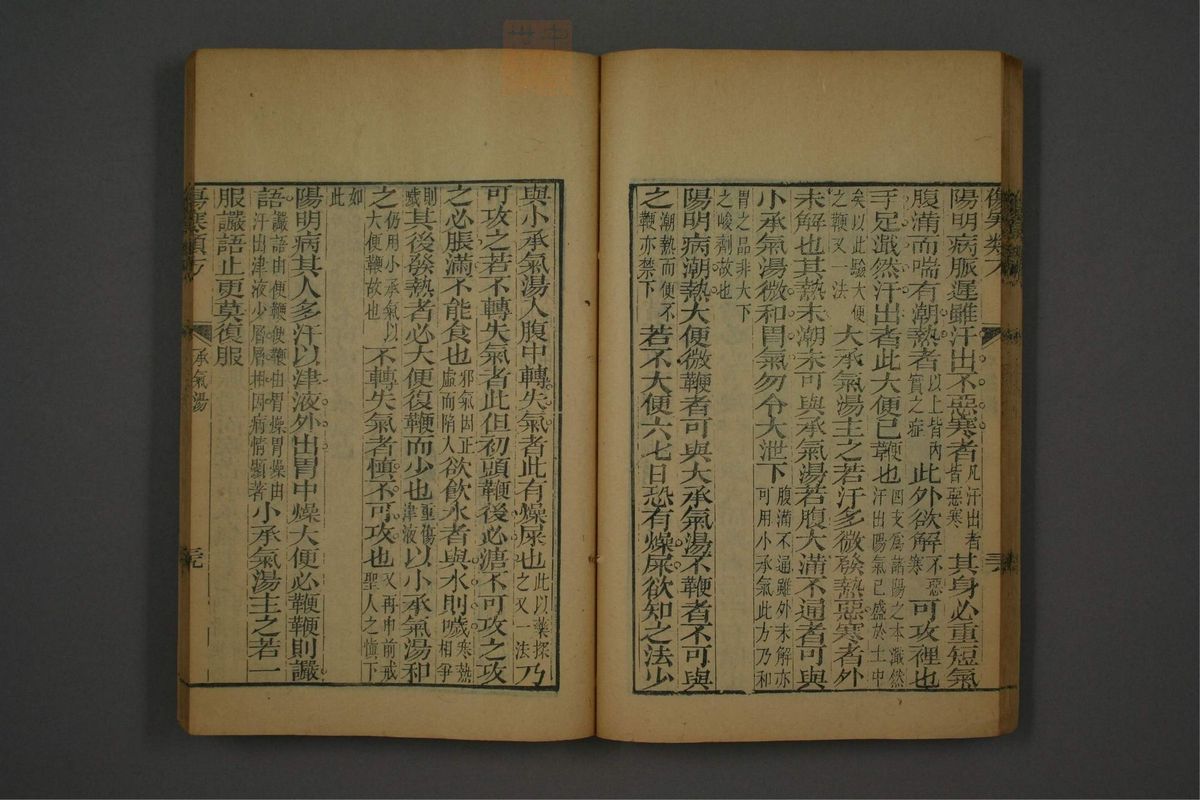 陽明病脈遲雖汗出不惡寒者凡汗出者皆惡寒其身必重短氣
腹滿而喘有潮熱者以上皆內實之症此外欲解不惡寒可攻裡也
手足濈然汗出者此大便已鞕也四支為諸陽之本濈然汗出陽氣已盛於土中
矣以此驗大便之鞕又一法大承氣湯主之若汗多微發熱惡寒者外
未解也其熱未潮未可與承氣湯若腹大滿不通者可與
小承氣湯微和胃氣勿令大泄下腹滿不通雖外未解亦可用小承氣此方乃和
胃之品非大下之峻劑故也
陽明病潮熱大便微鞕者可與大承氣湯不鞕者不可與
之潮熱而便不鞕亦禁下若不大便六七日恐有燥屎欲知之法少
與小承氣湯入腹中轉失氣者此有燥屎也此以藥探之又一法乃
可攻之若不轉失氣者此但初頭鞕後必溏不可攻之攻
之必脹滿不能食也邪氣因正虛而陷入欲飲水者與水則噦寒熱相爭
則噦其後發熱者必大便復鞕而少也重傷津液以小承氣湯和
之仍用小承氣以大便鞕故也不轉失氣者慎不可攻也又再申前戒聖人之慎下
如此
陽明病其人多汗以津液外出胃中燥大便必鞕鞕則讝
語讝語由便鞕便鞕由胃燥胃燥由汗出津液少層層相因病情顯著小承氣湯主之若一
服讝語止更莫復服
傷寒類方
承氣湯